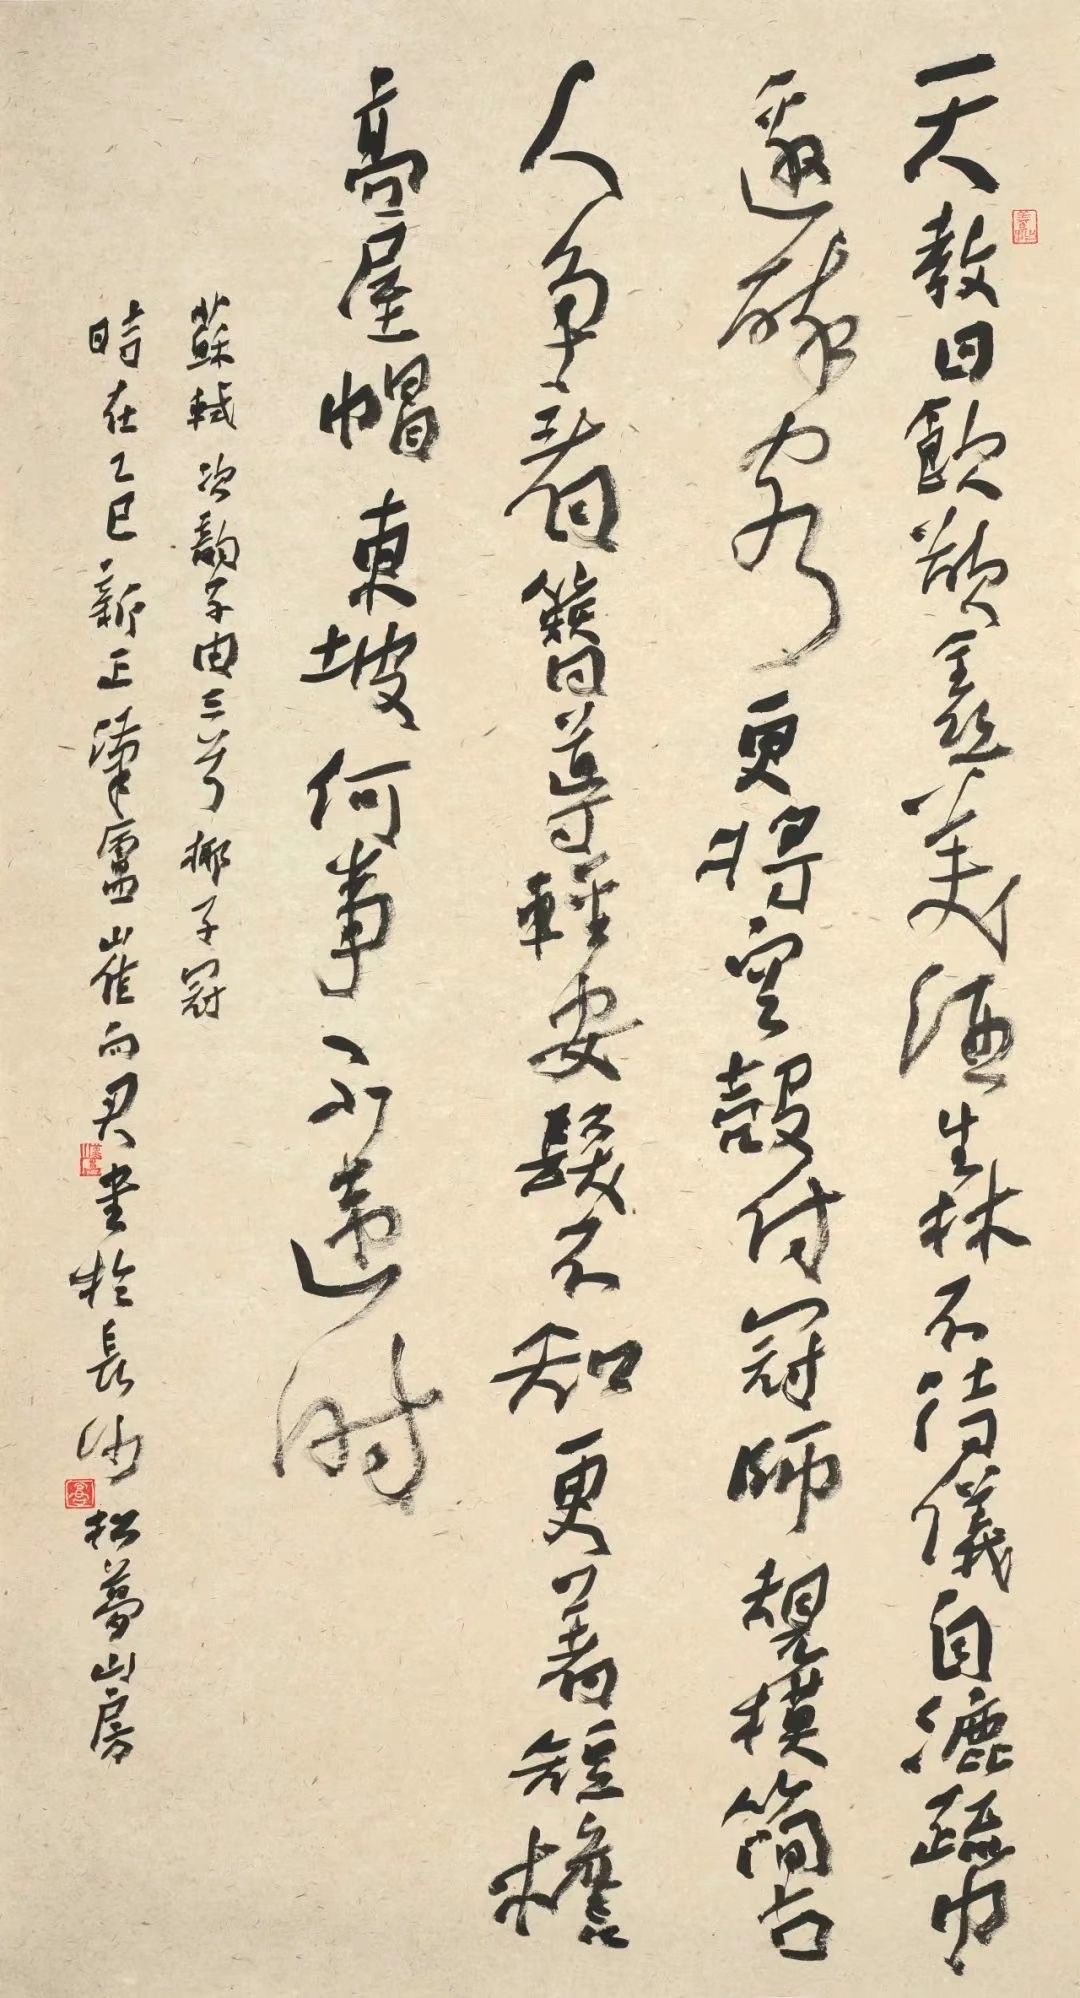 天教日飲欲全絲美酒生林不待儀自漉疏巾
邀醉客更將空殼付冠師規模簡古
人争看簪導輕安髮不知更著短檐
高屋帽東坡何事不違時
蘇軾次韻子由三首椰子冠
時在乙巳新正廬崔向君書於長沙松夢山房